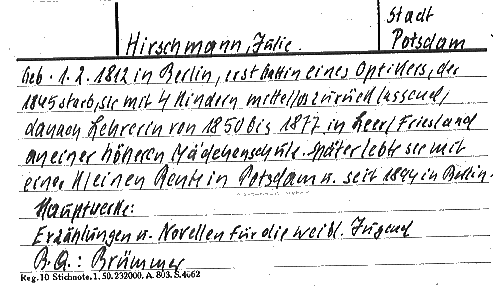 Stadt
Hirschmann, Julie. Potsdam
Geb. 1.2.1812 in Berlin, erst Gattin eines Optikers, der
1845 starb, sie mit 4 Kindern mittellos zurücklassend,
danach Lehrerin von 1850 bis 1877 in Leer/Friesland
an einer höheren Mädchenschule. Später lebte sie mit
einer kleinen Rente in Potsdam u. seit 1894 in Berlin.
Hauptwerke:
Erzählungen u. Novellen für die weibl. Jugend
B.Q.: Brümmer
Keg. 10 Stichnote. 1. 50. 232000. A. 803. S. 4662